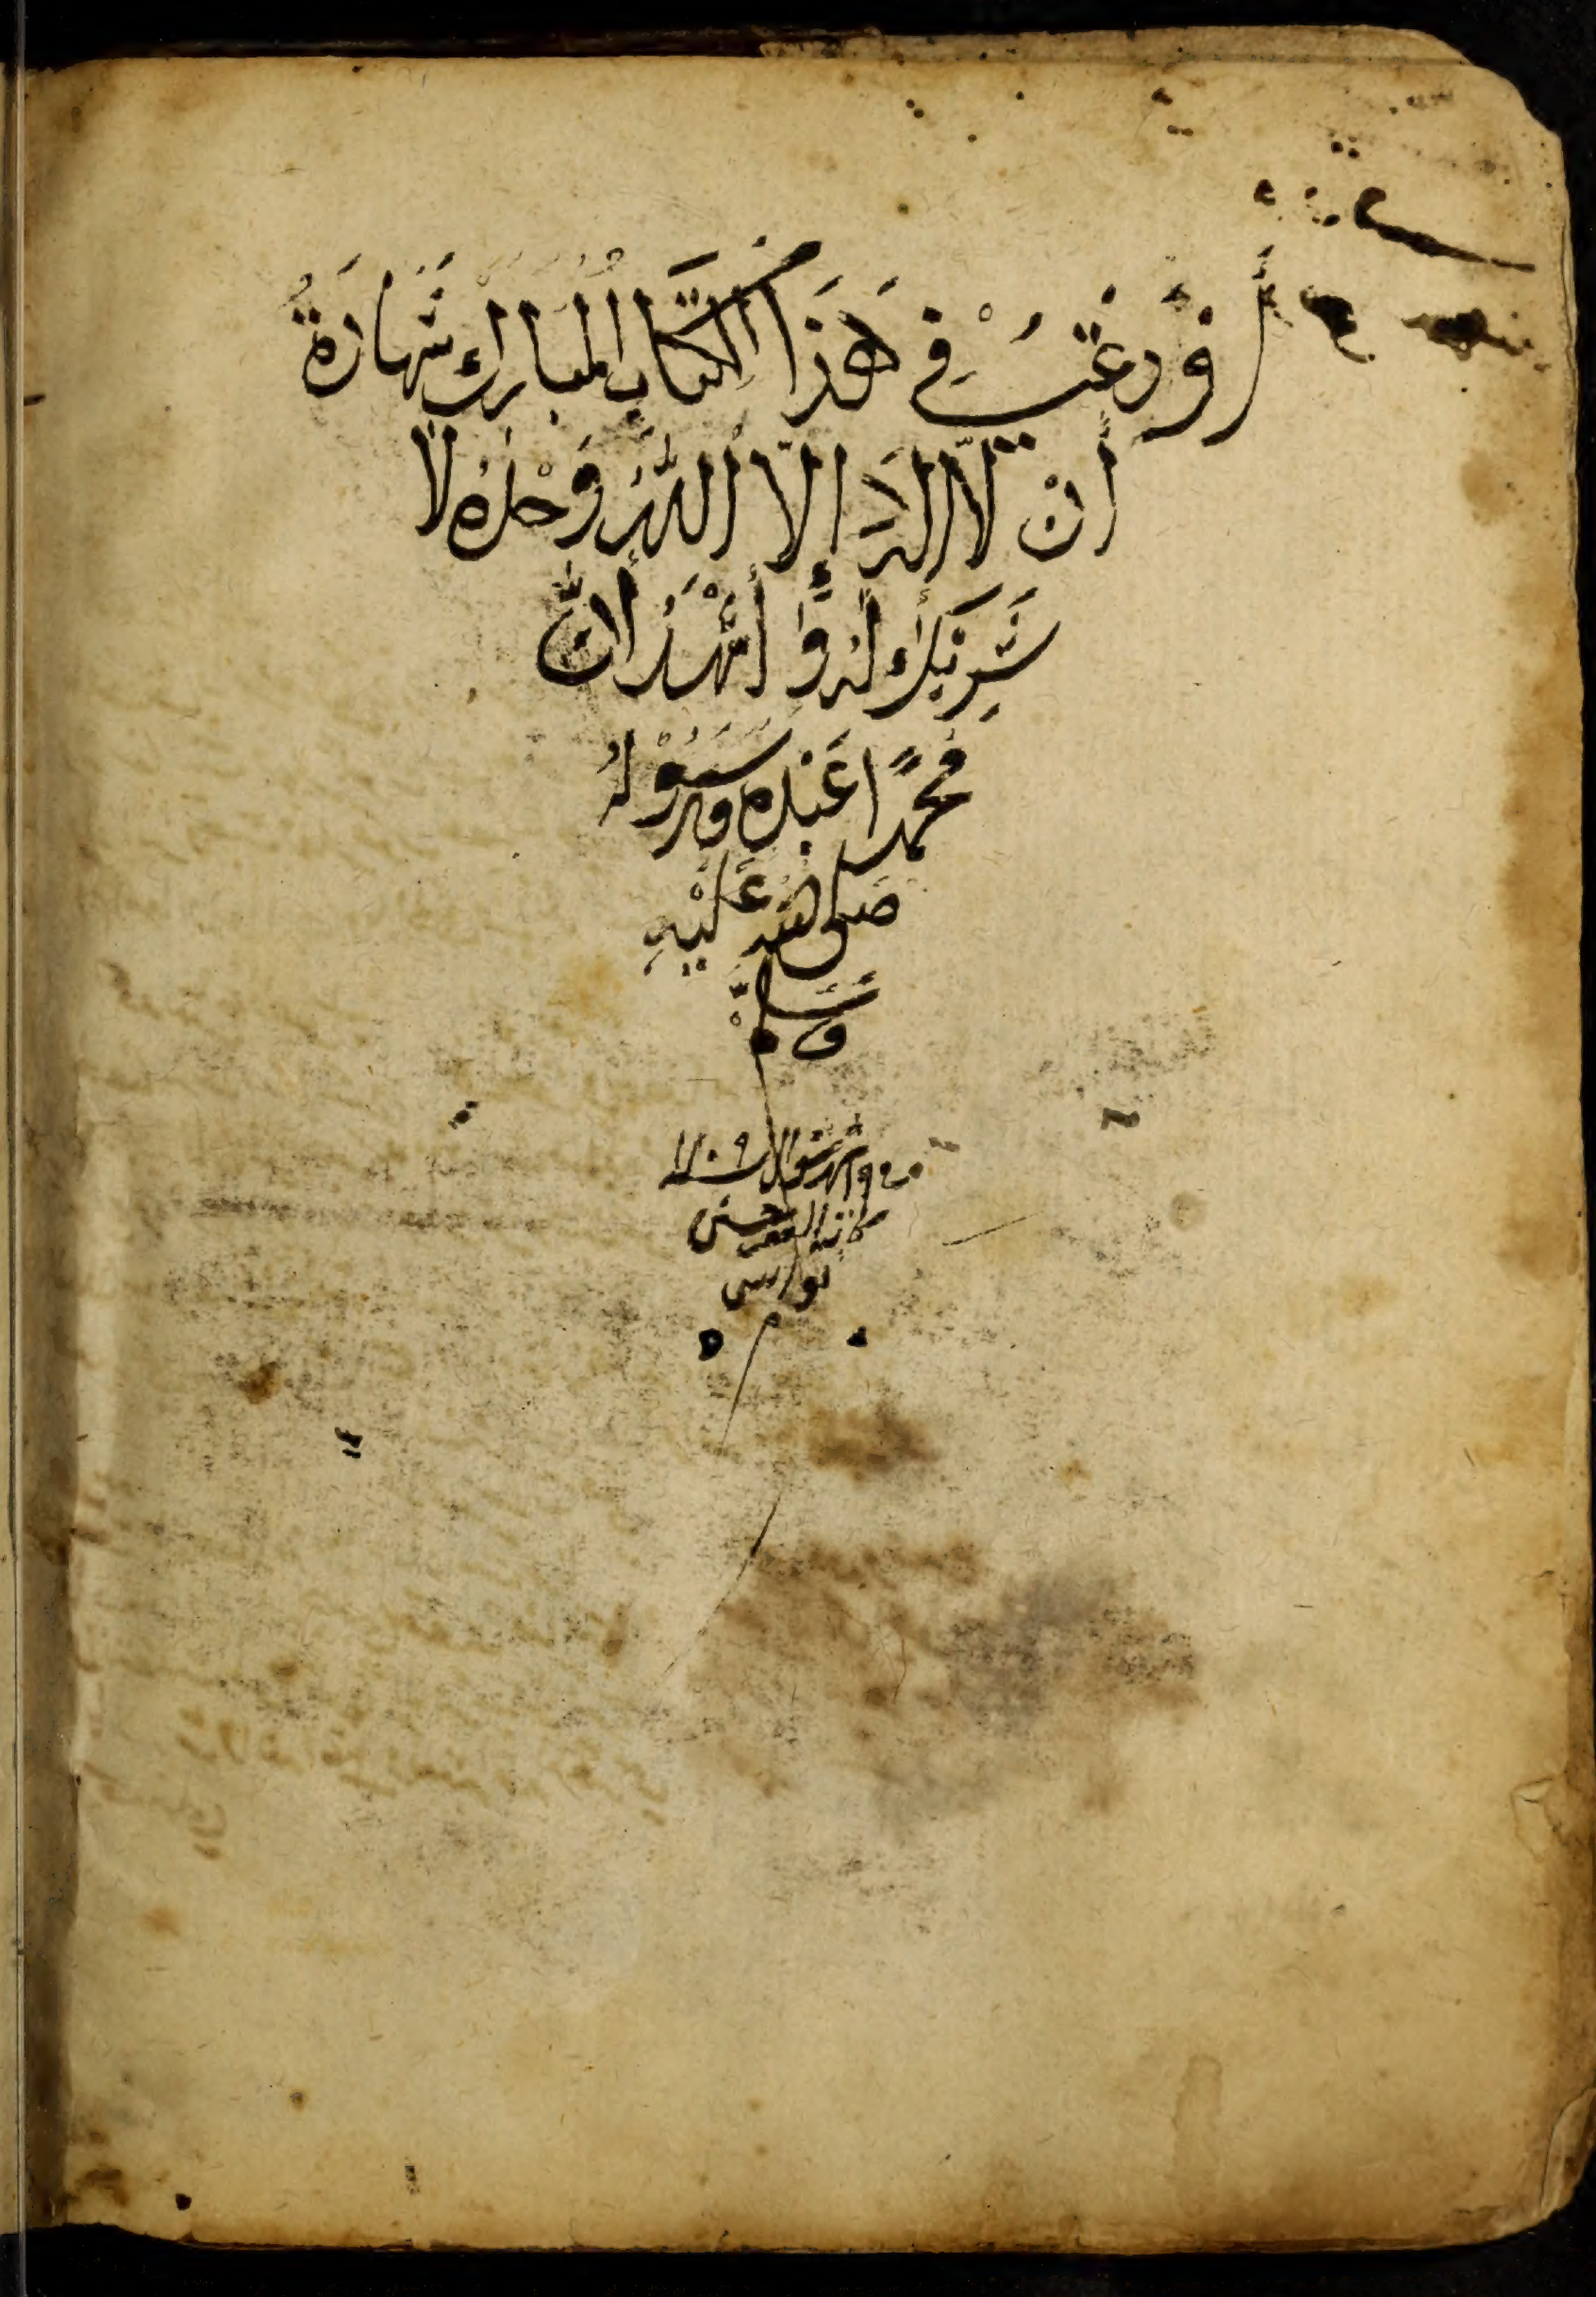 أَوْدَعْتُ فِي هَذَا الكِتَابِ المُبَارَك شَهَادَةُ
أَنْ لَا إِلَهَ إِلَّا اللَّهُ وَحْدَهُ لَا
شَرِيْكَ لَهُ وَأَشْهَدُ أَنَّ
مُحَمَّدًا عَبْدُهُ وَرَسُوْلُهُ
صَلَى اللَّه عَلَيْهِ
وَسَلَّمْ
شهر شوال سنة ١١٠٩
كاتبه الفقير حسن